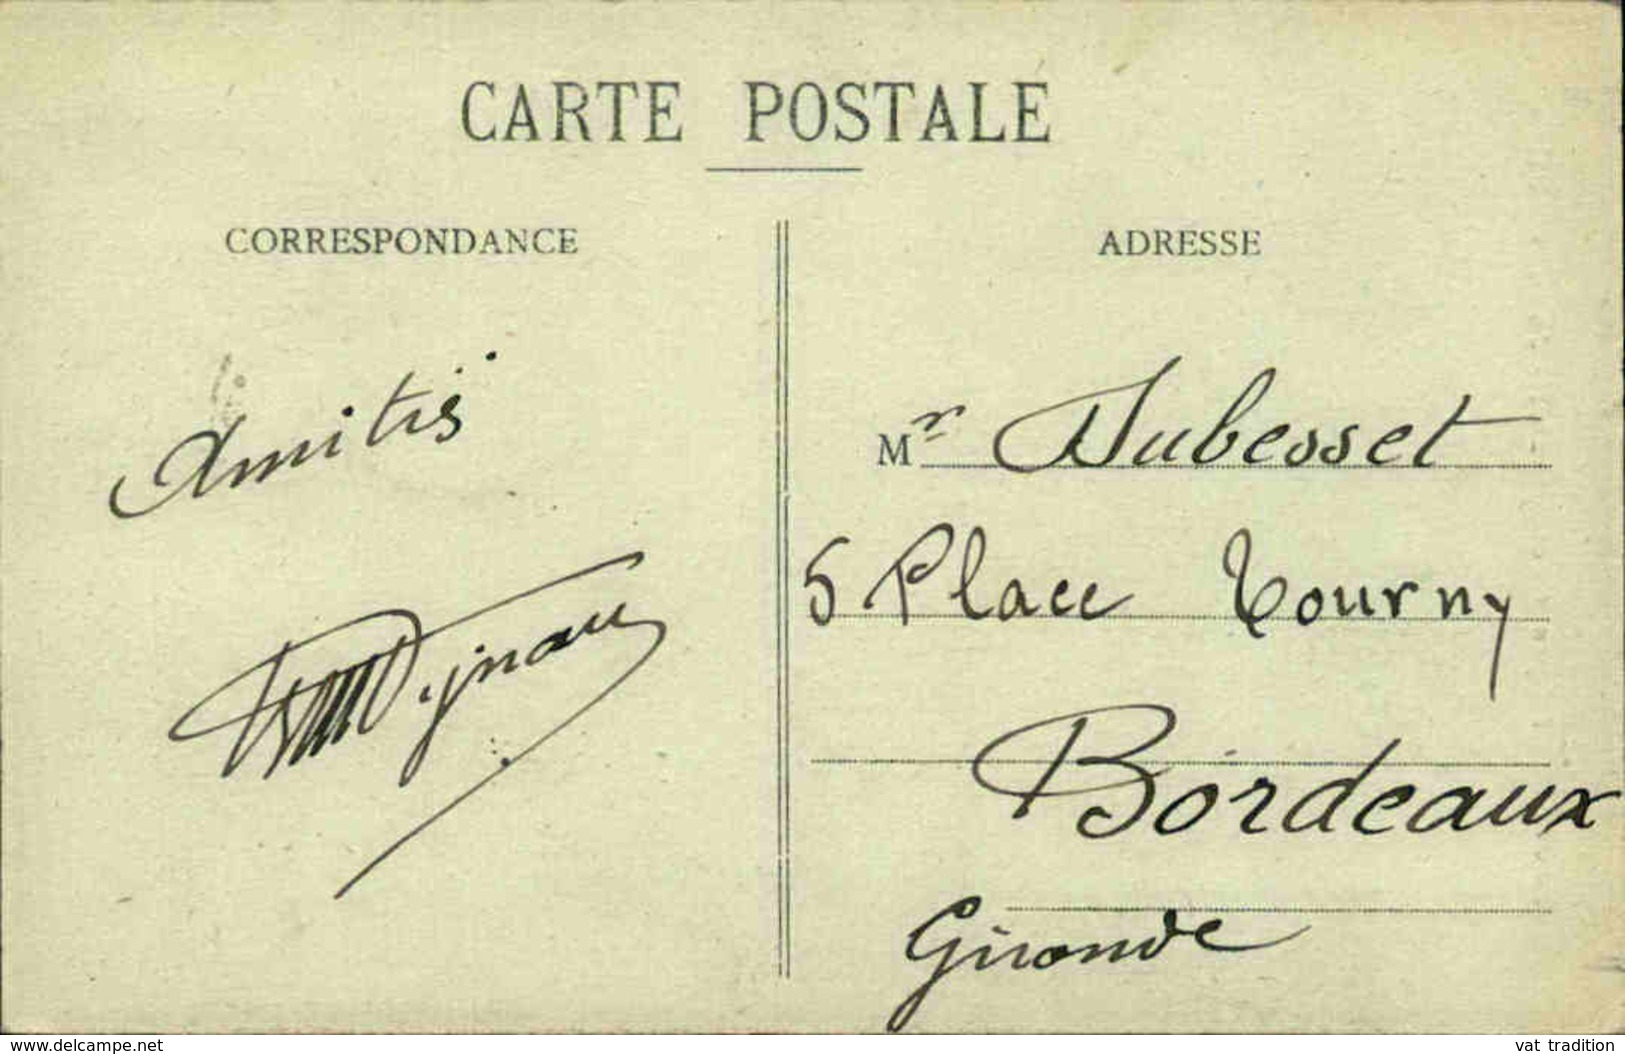 CARTE POSTALE
CORRESPONDANCE
ADRESSE
Amitiés
Mr Dubesset
5 Place Tourny
Bordeaux
Gironde
www.delcampe.net
vat_tradition